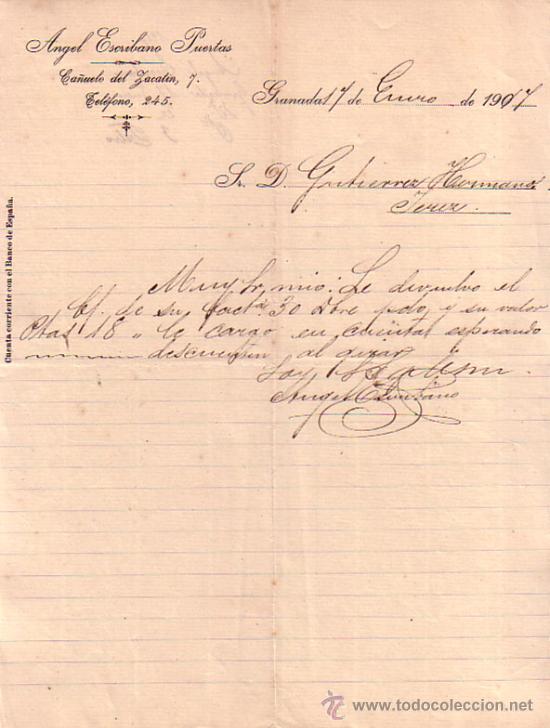 Angel Escribano Puertas
Cañuelo del Zacatin, 7.
Teléfono, 245.
Granada 17 de Enero de 1907
Sr. D. Gutierrez Hermanos
Jerez
Cuenta corriente con el Banco de España.
Muy Sr. mio: Le devuelvo el
de su fact.ª 30 Dbre pdo y su valor
Ptas 18 " le cargo en cuenta esperando
descuenten al girar
Soy
Angel Escribano
www.todocoleccion.net